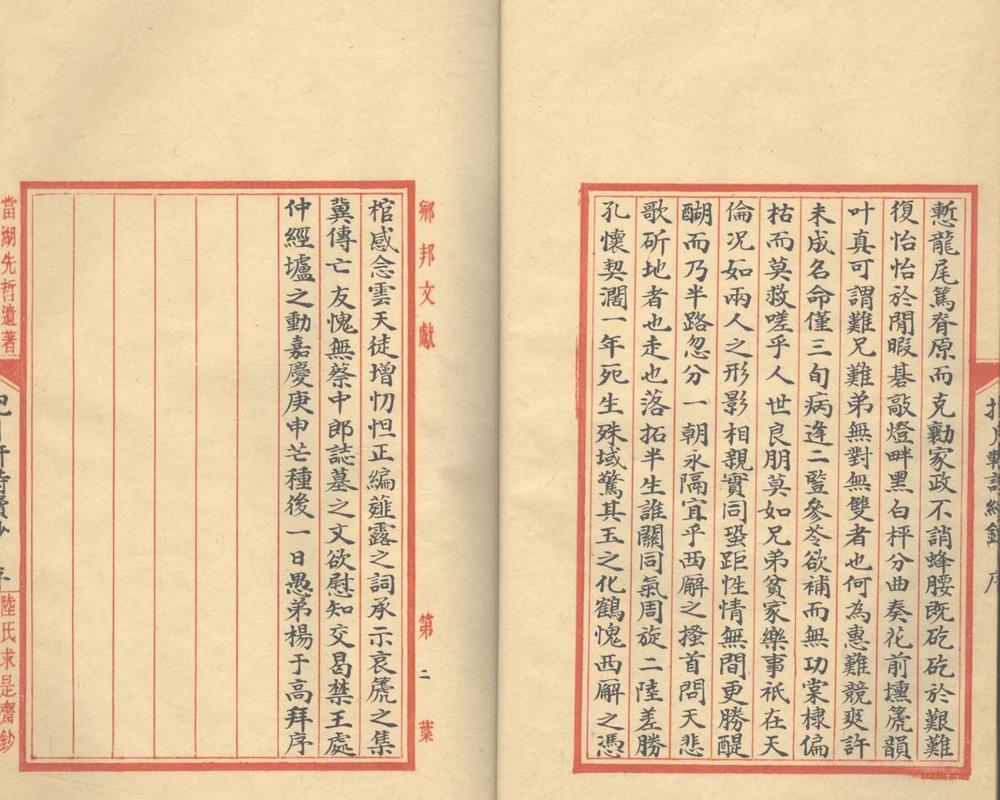 慙龍尾篤脊原而克勷家政不誚蜂腰既矻矻於艱難
復怡怡於閒暇碁敲燈畔黑白枰分曲奏花前壎篪韻
叶真可謂難兄難弟無對無雙者也何為惠難競爽許
未成名命僅三旬病逢二豎參苓欲補而無功棠棣偏
枯而莫救嗟乎人世良朋莫如兄弟貧家樂事祇在天
倫況如兩人之形影相親實同蛩距性情無間更勝醍
醐而乃半路忽分一朝永隔宜乎西廨之搔首問天悲
歌斫地者也走也落拓半生誰關同氣周旋二陸差勝
孔懷契濶一年死生殊域驚其玉之化鶴愧西廨之憑
鄉邦文獻 第二葉
棺感念雲天徒增忉怛正編薤露之詞承示哀篪之集
冀傳亡友愧無蔡中郎誌墓之文欲慰知交曷禁王處
仲經壚之動嘉慶庚申芒種後一日愚弟楊于高拜序
當湖先哲遺著
陸氏求是齋鈔